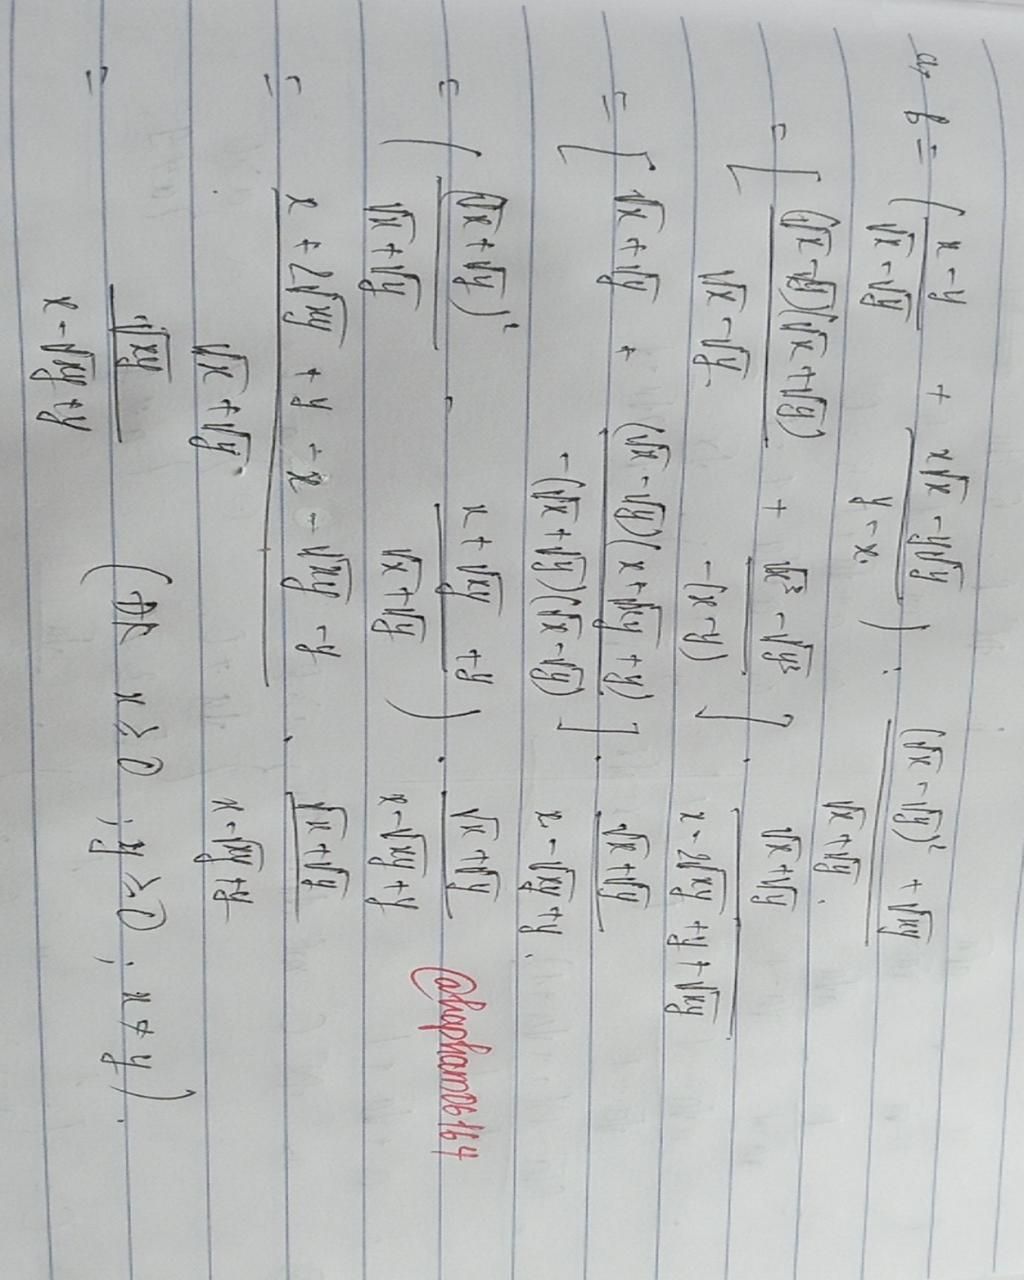 a, B = ( x - y / √x - √y + x√x - y√y / y - x ) : (√x - √y)² + √xy / √x + √y.
= [ (√x - √y)(√x + √y) / √x - √y + √x³ - √y³ / -(x - y) ] . √x + √y / x - 2√xy + y + √xy
= [ √x + √y + (√x - √y)(x + √xy + y) / -(√x + √y)(√x - √y) ] . √x + √y / x - √xy + y.
= ( (√x + √y)² / √x + √y - x + √xy + y / √x + √y ) . √x + √y / x - √xy + y
@hophamdb164
= x + 2√xy + y - x - √xy - y / √x + √y . √x + √y / x - √xy + y
= √xy / x - √xy + y (Đk x ≥ 0 ; y ≥ 0 ; x ≠ y).